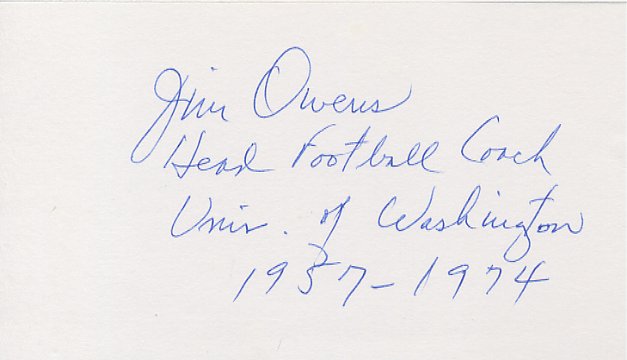 Jim Owens
Head Football Coach
Univ. of Washington
1957-1974